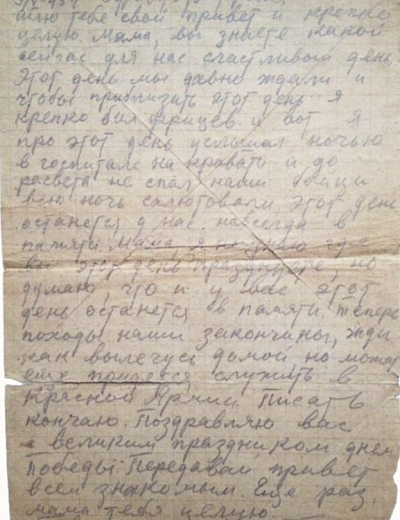 шлю тебе свой привет и крепко
целую. Мама, вы знаете какой
сейчас для нас счастливый день
Этот день мы давно ждали и
чтобы приблизить этот день я
крепко бил фрицев. и вот я
про этот день услышал ночью
в госпитале на кровати и до
расвета не спал, наши бойци
всю ночь салютовали этот день
останется у нас навсегда в
памяти. Мама я не знаю где
вы этот день празднуете, но
думаю, что и у вас этот
день останется в памяти. теперь
походы наши закончины, жди
как вылечуся домой но может
еще придется служить в
Красной Армии. Писать
кончаю. Поздравляю вас
с великим праздником днем
Победы. Передавай привет
всем знакомым. Еще раз,
мама тебя целую.